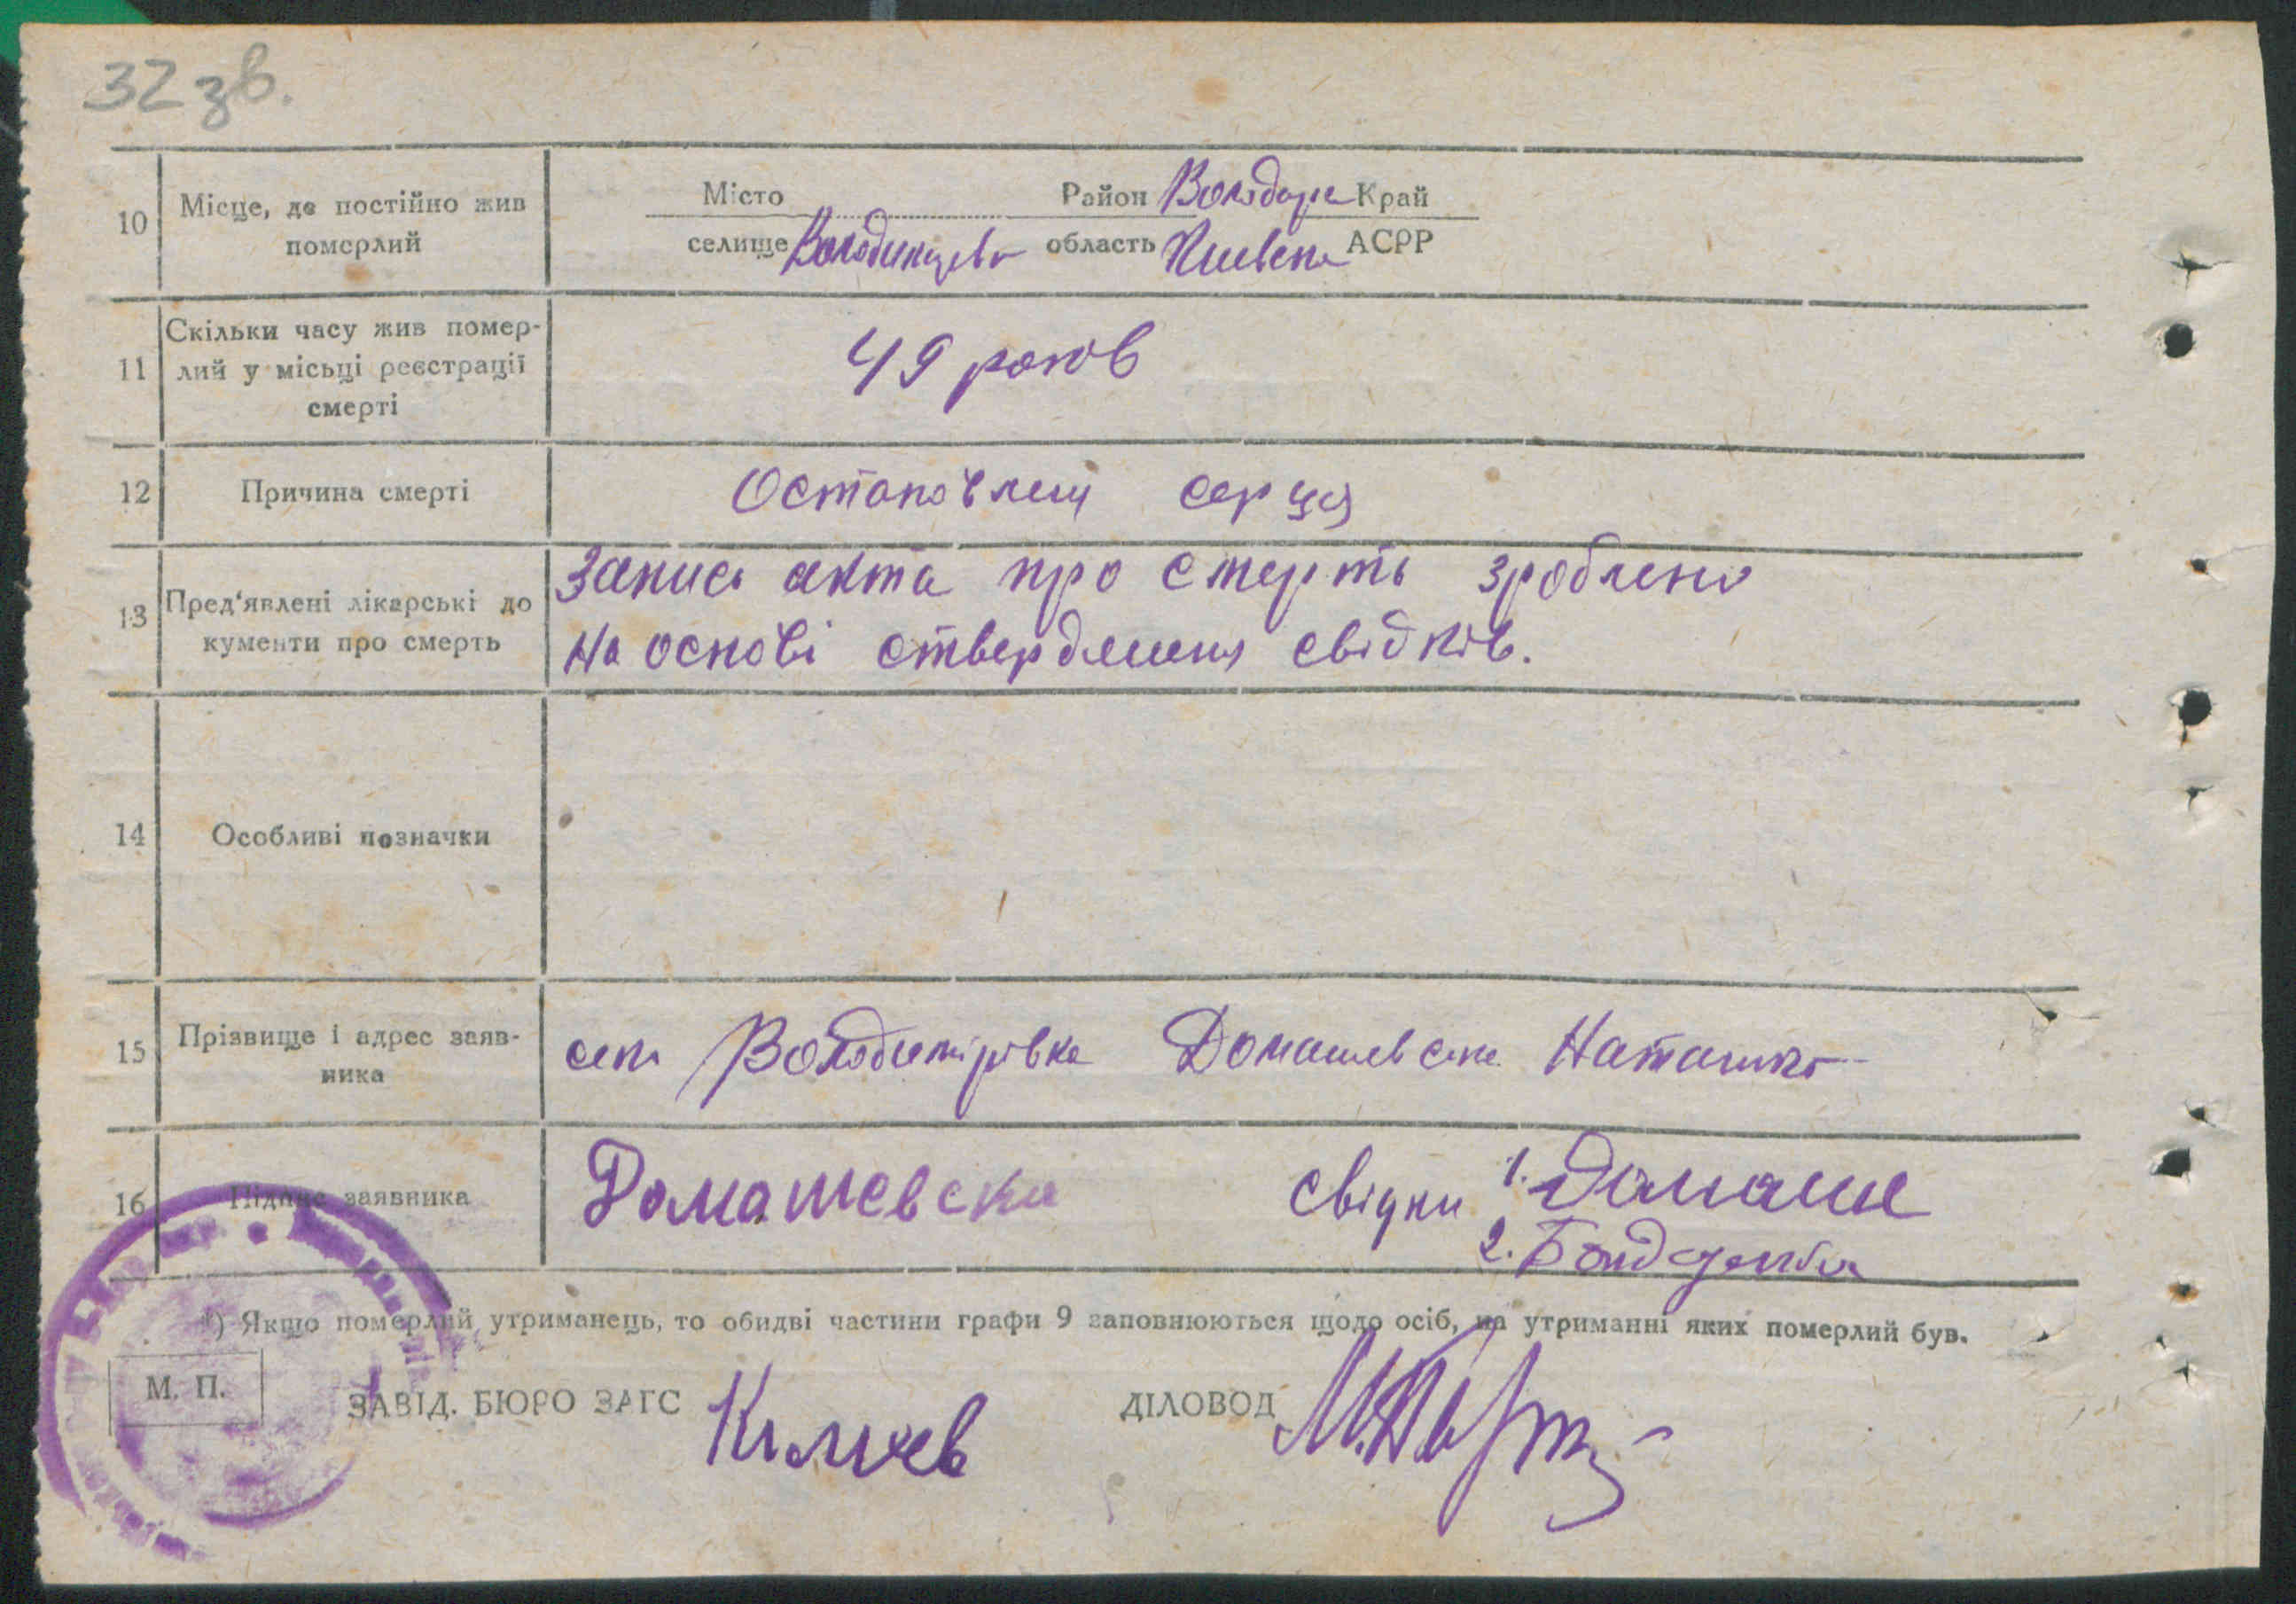 32 зв.
10 Місце, де постійно жив померлий
Місто Район Володарс Край
селище область Київська АСРР
11 Скільки часу жив помер-
лий у місьці реєстрації
смерті
49 років
12 Причина смерті
серця
13 Пред'явлені лікарські до
кументи про смерть
Запись акта про смерть зроблено
на основі ствердження свідків.
14 Особливі позначки
15 Прізвище і адрес заяв-
ника
село Володимірівка Домашевська Наташка
16 Підпис заявника
Домашевска свідки 1. Домаше
2.
*) Якщо померлий утриманець, то обидві частини графи 9 заповнюються щодо осіб, на утриманні яких померлий був.
М. П.
ЗАВІД. БЮРО ЗАГС ДІЛОВОД